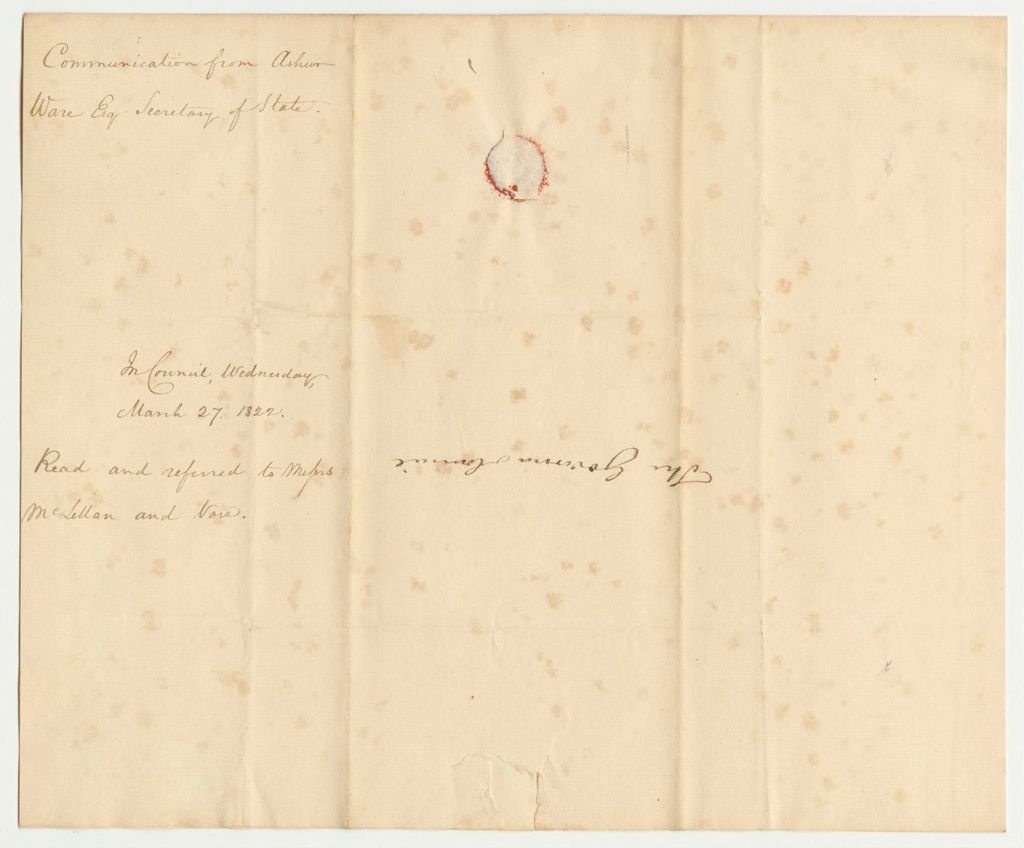 Communication from Ashur
Ware Esq Secretary of State.
In Council, Wednesday,
March 27. 1822.
Read and referred to Messrs
McLellan and Vose.
The Governor & Council